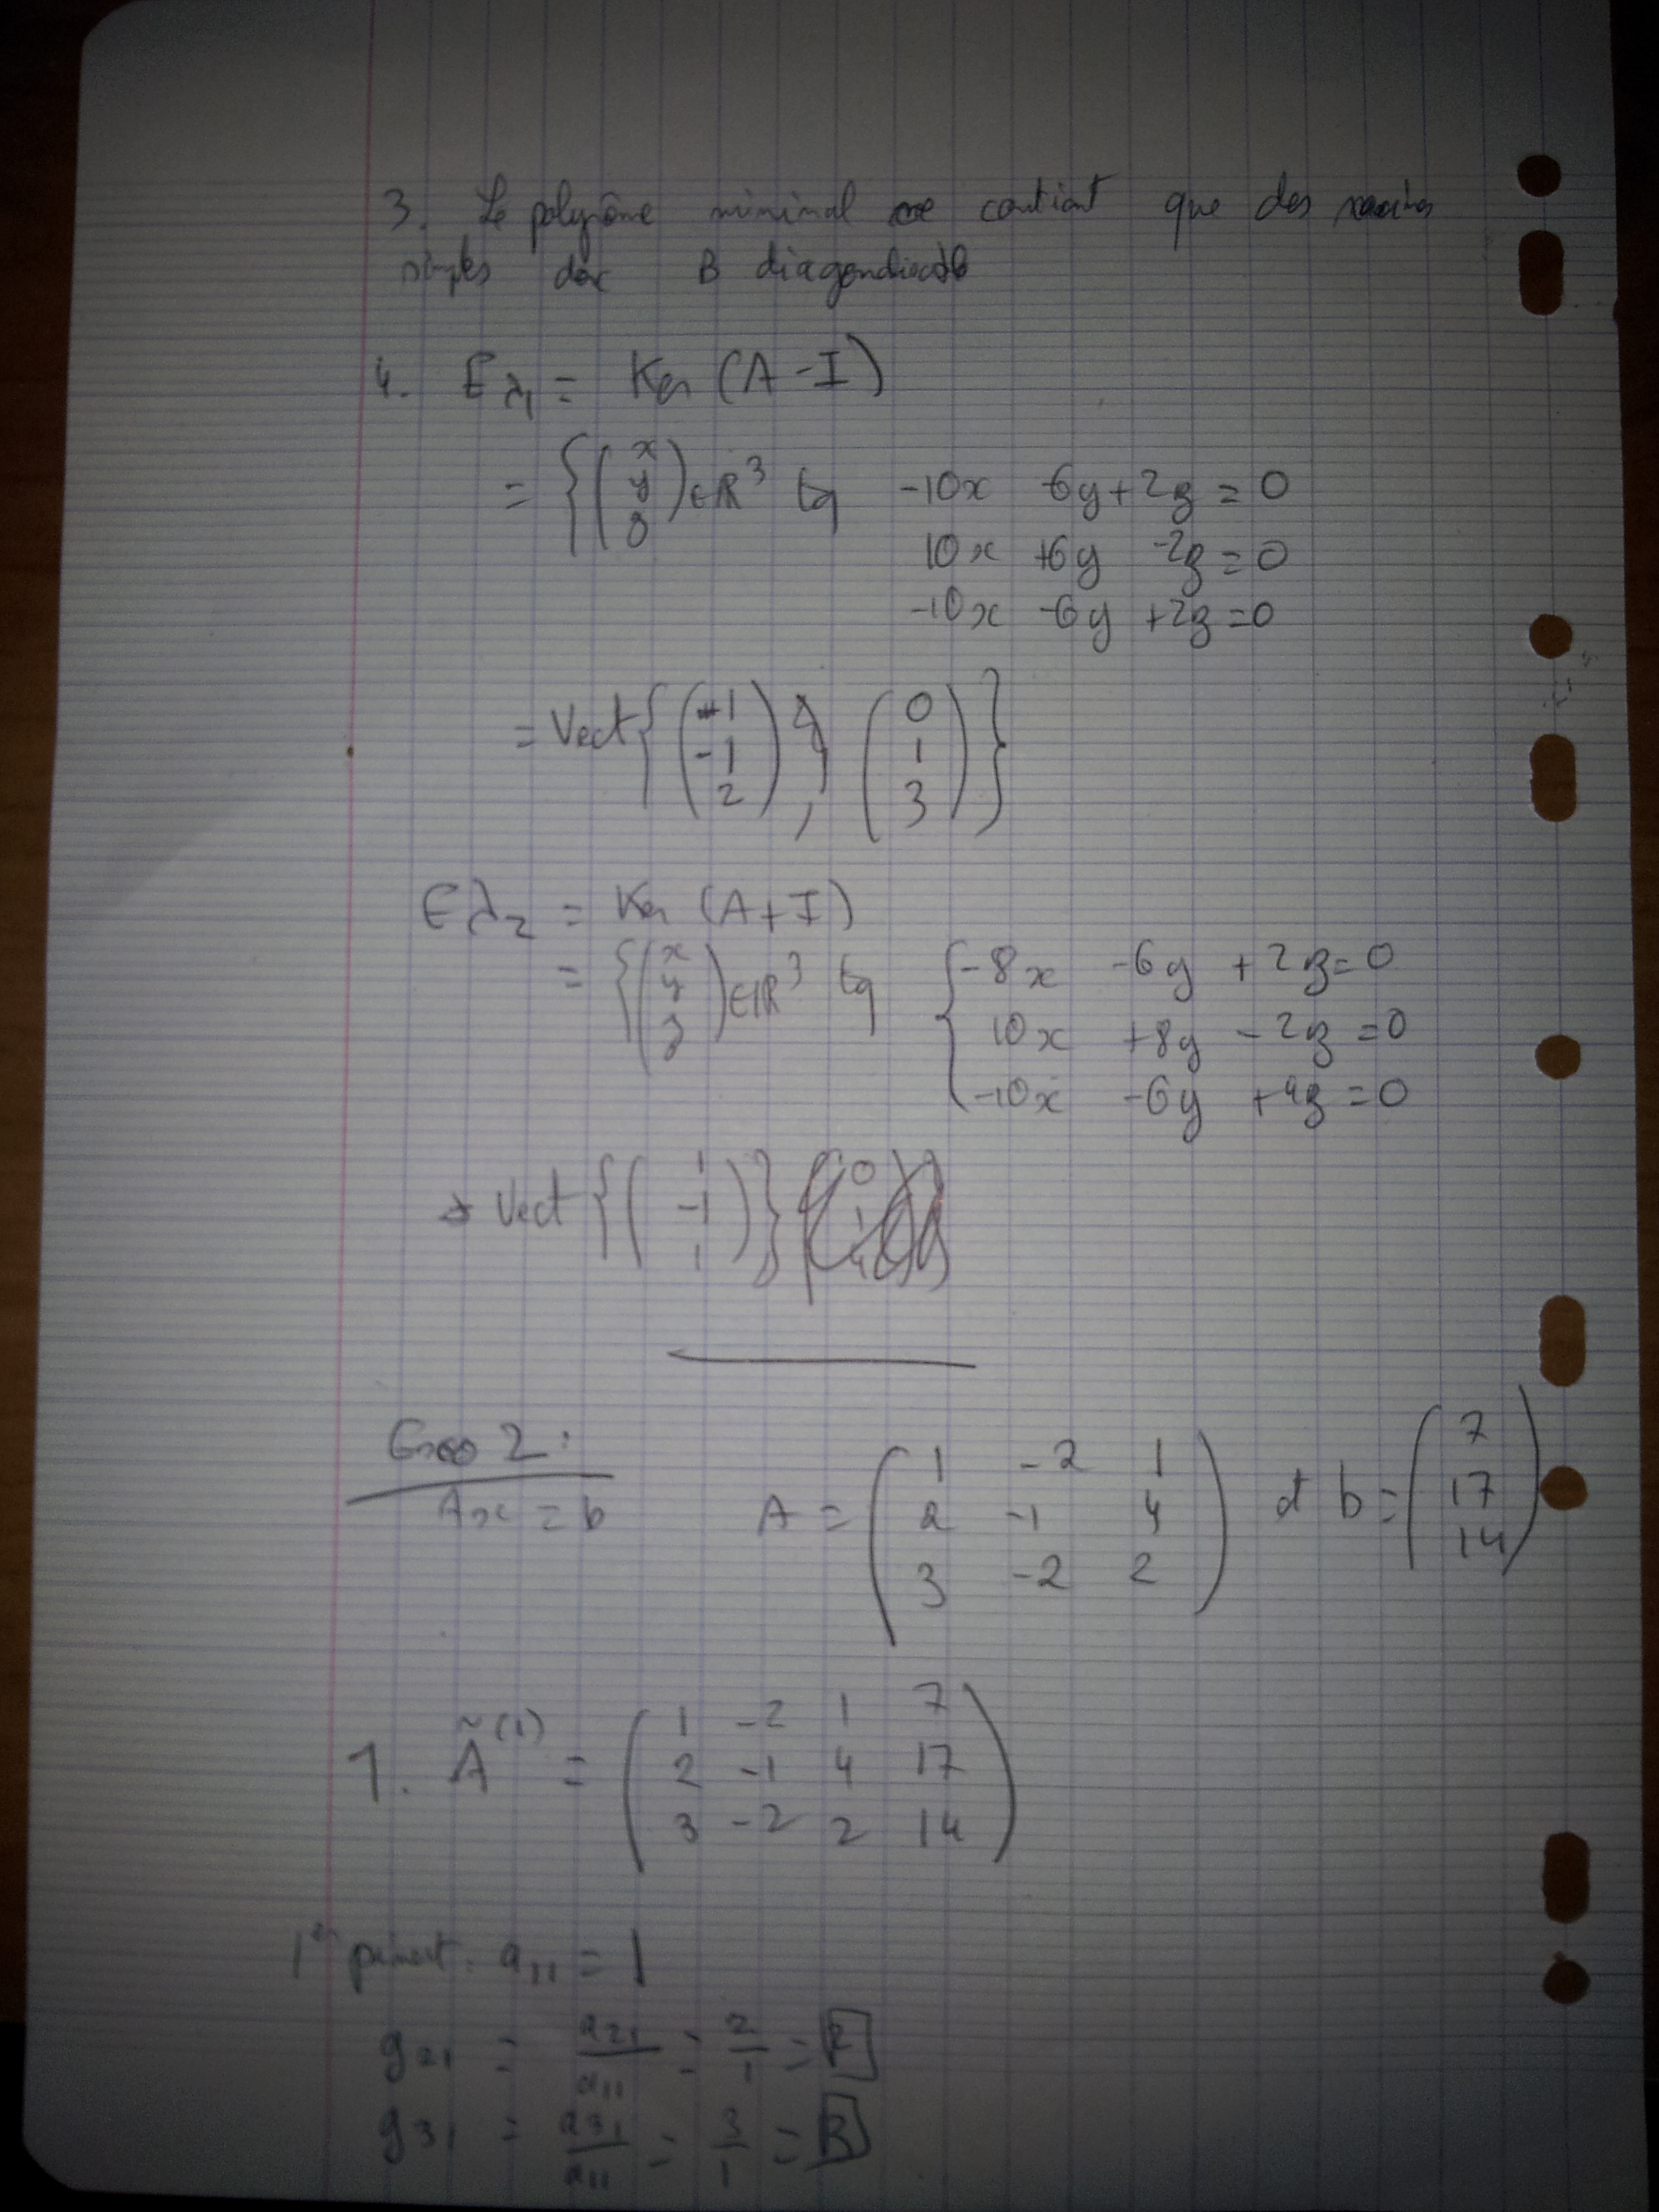 3. Le polynôme minimal ne contient que des racines
simples donc B diagonalisable
4. Eλ1 = Ker (A - I)
= { (x y z) ∈ R^3 tq -10x -6y + 2z = 0
10x +6y -2z = 0
-10x -6y +2z = 0
= Vect { (1 -1 2) , (0 1 3) }
Eλ2 = Ker (A + I)
= { (x y z) ∈ R^3 tq { -8x -6y + 2z = 0
10x +8y - 2z = 0
-10x -6y +4z = 0
Vect { (1 -1 1) }
Exo 2 :
Ax = b A = (1 -2 1
2 -1 4
3 -2 2) et b = (7 17 14)
1. Ã^(1) = (1 -2 1 7
2 -1 4 17
3 -2 2 14)
1er pivot : a11 = 1
g21 = a21/a11 = 2/1 = 2
g31 = a31/a11 = 3/1 = 3